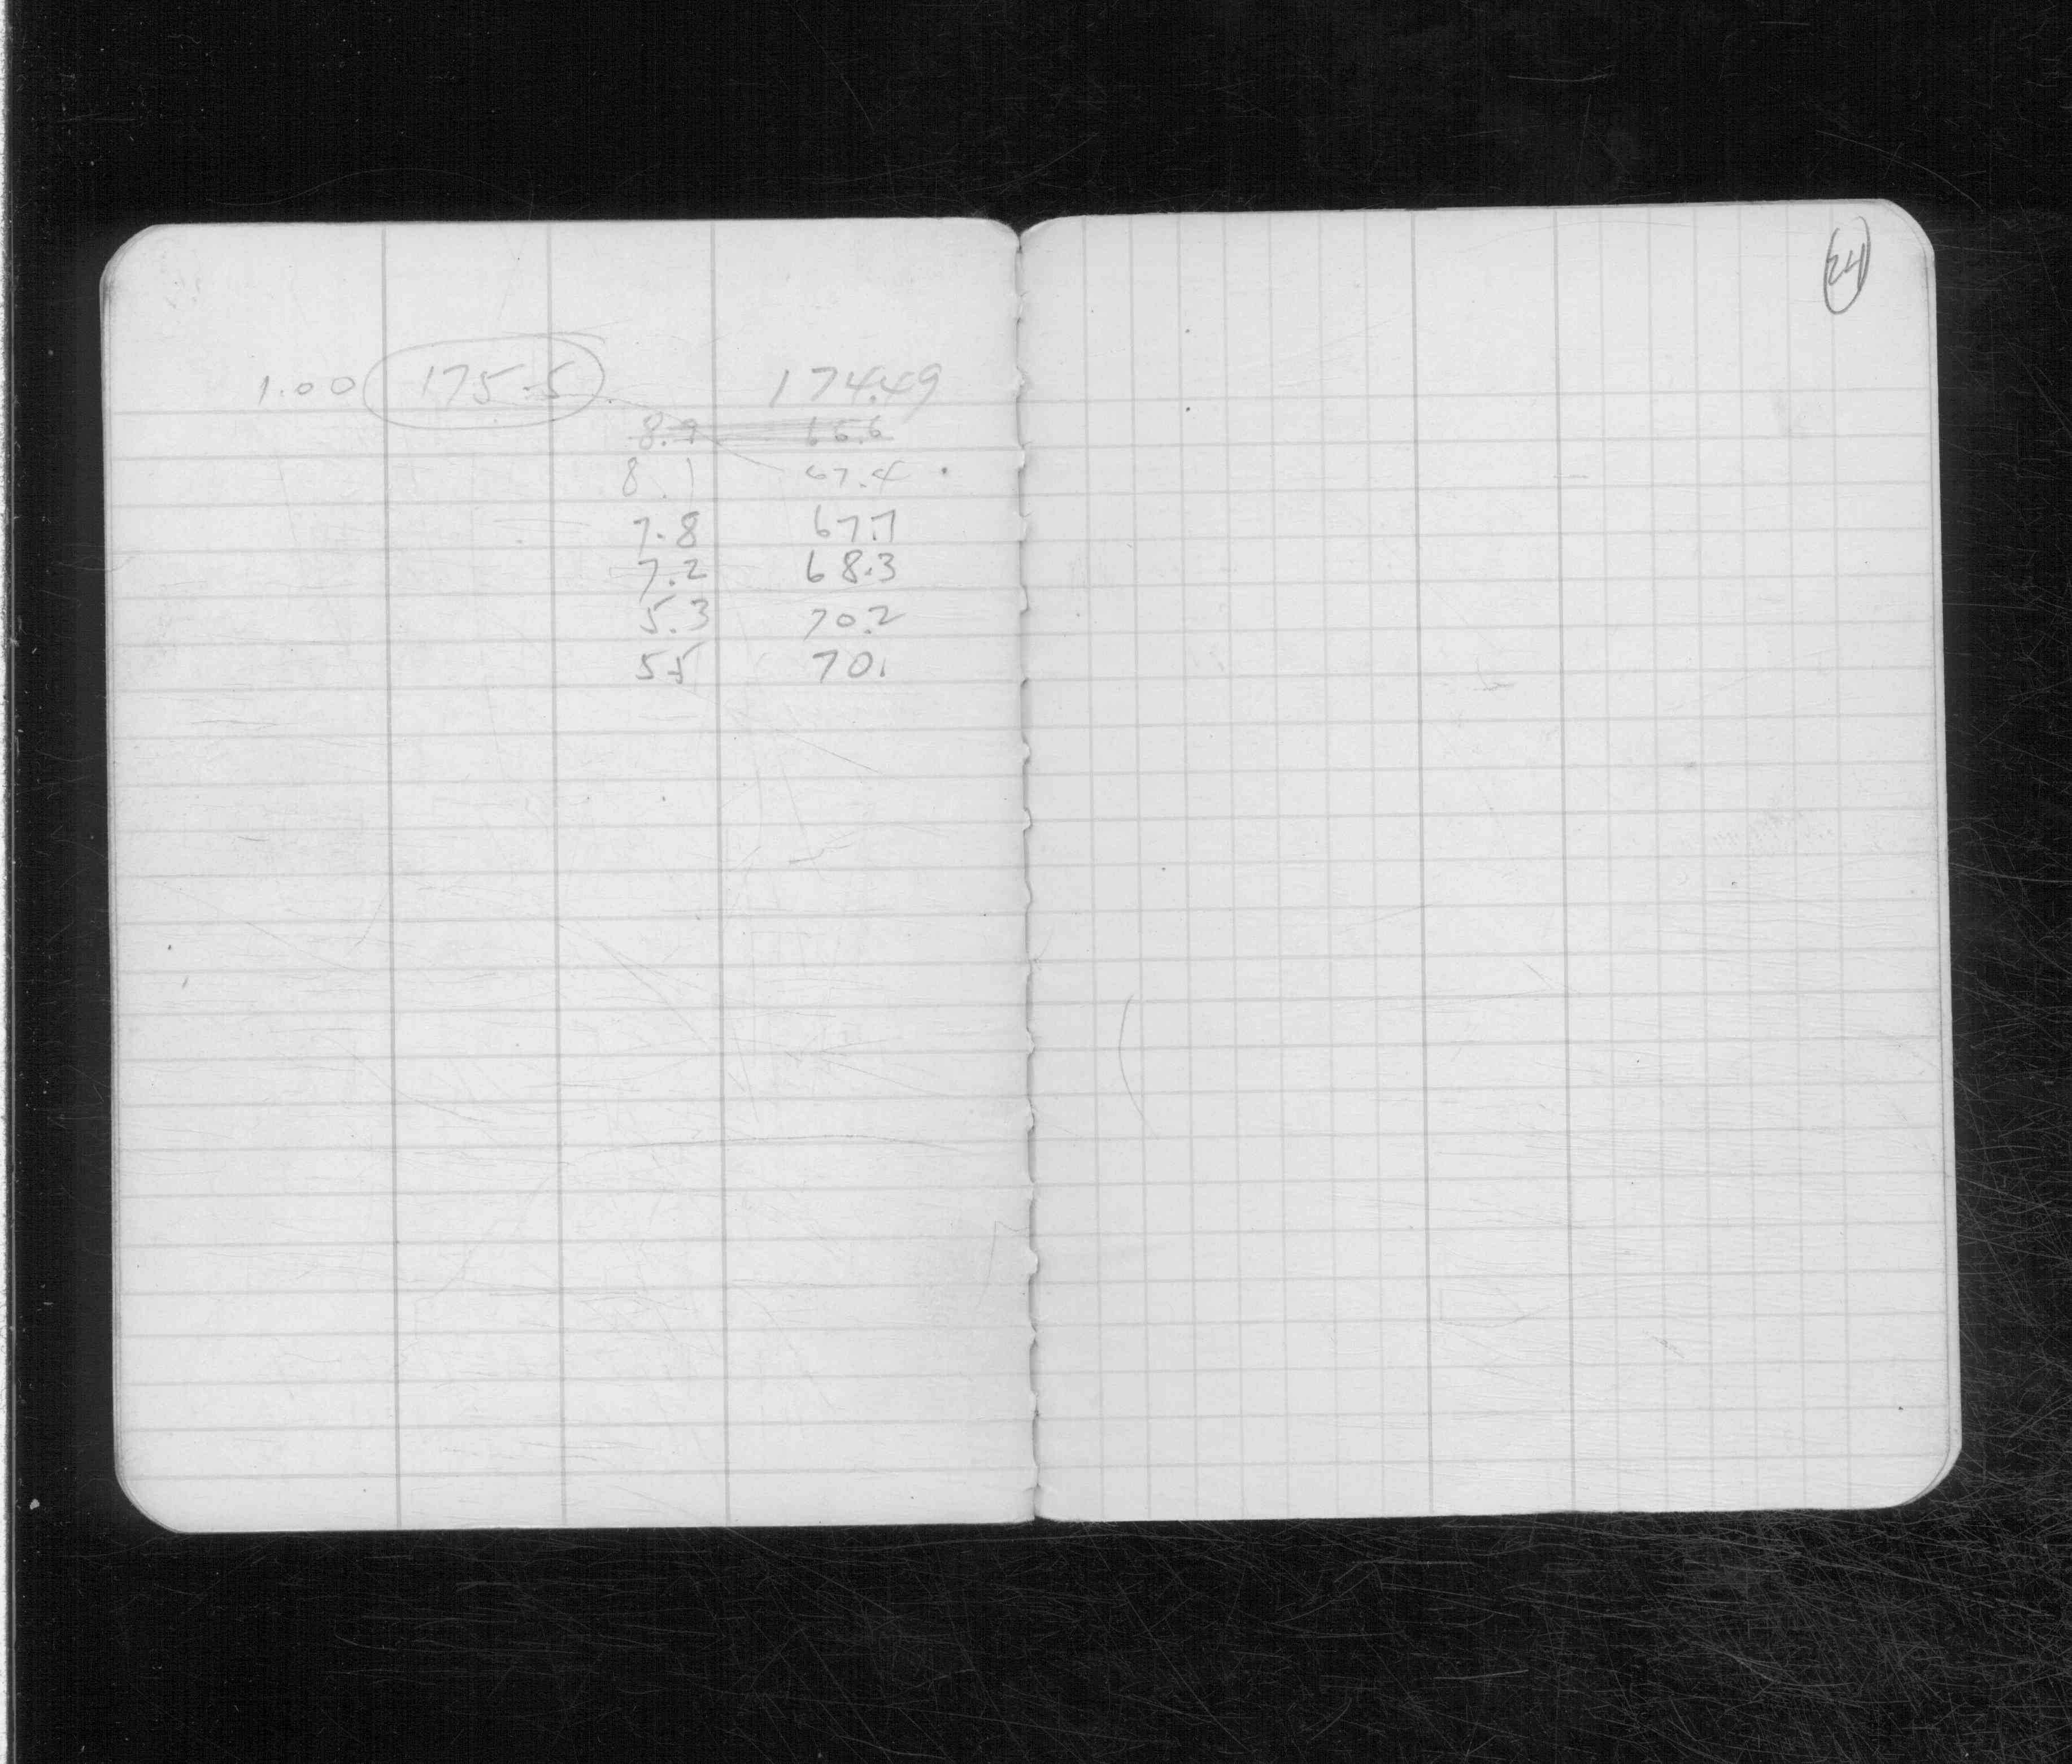 24
1.00 175.5 174.49
8.9 66.6
8.1 67.4
7.8 67.7
7.2 68.3
5.3 70.2
5.5 70.1